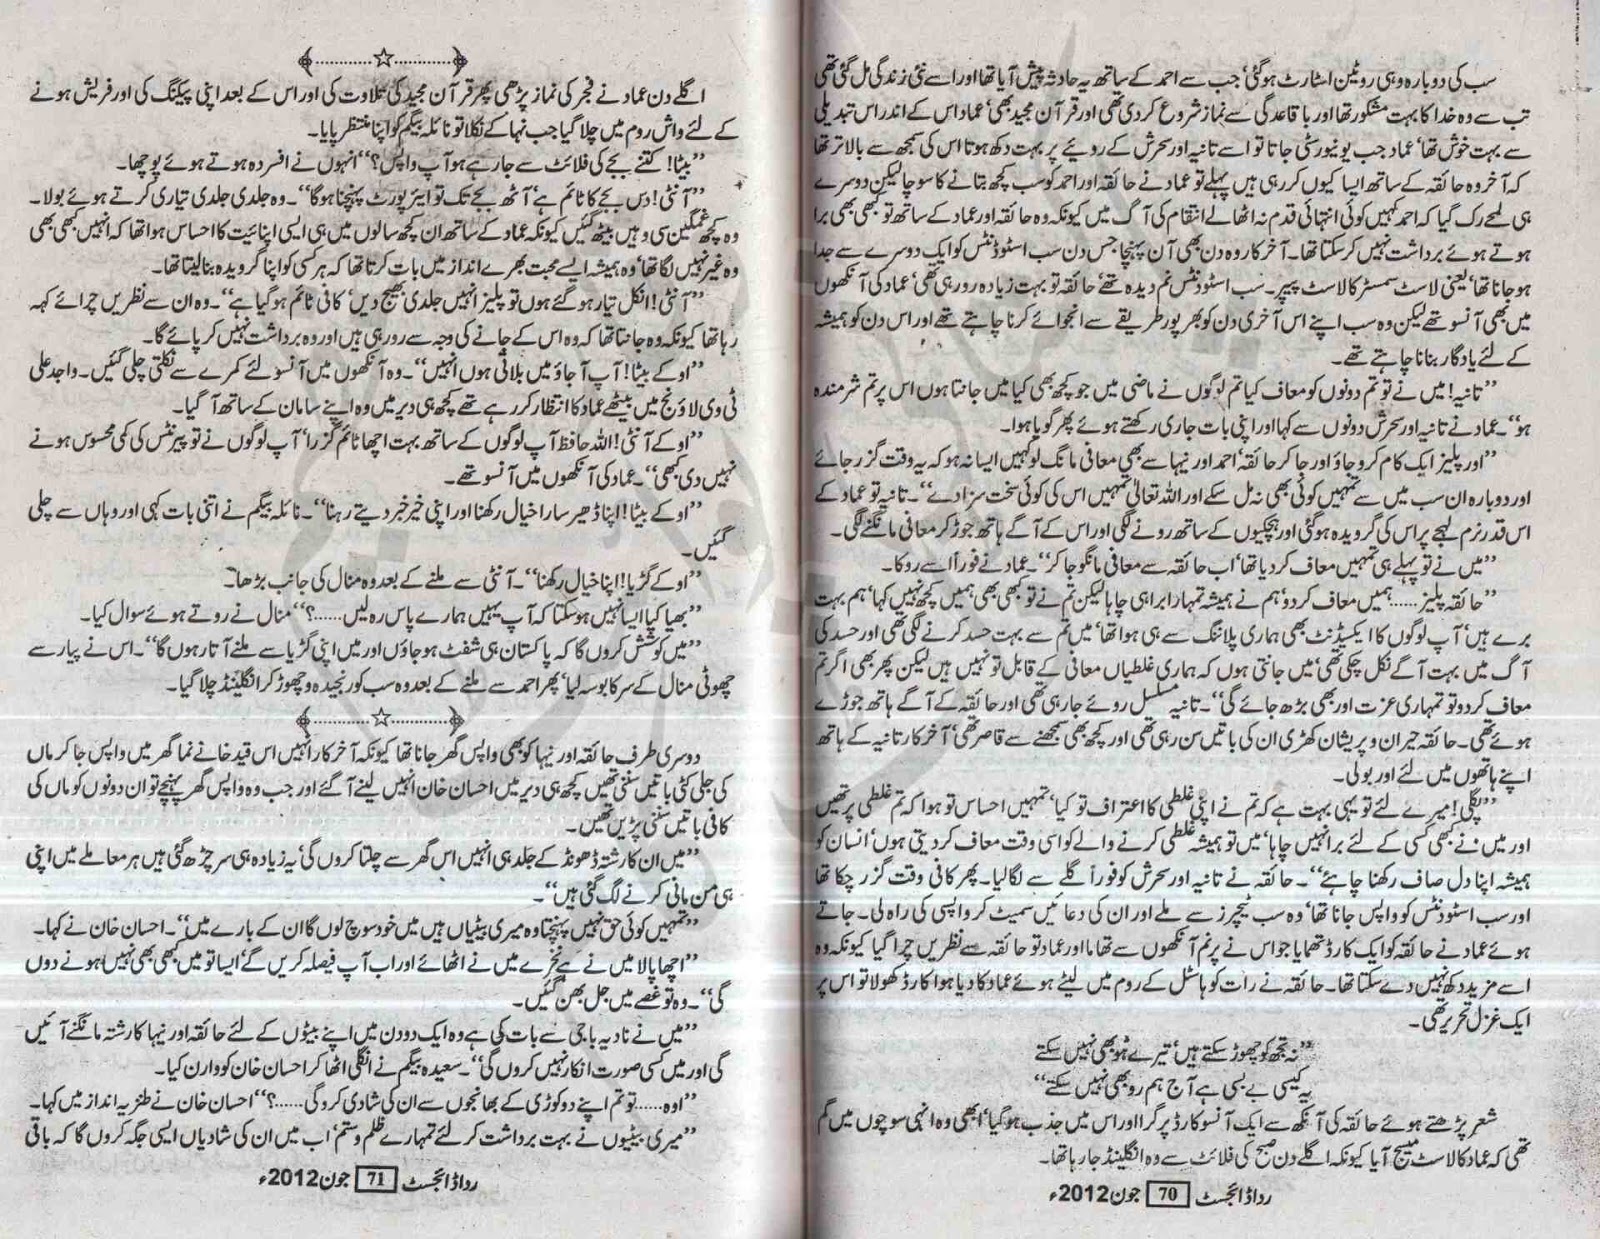 سب کی دوبارہ وہی روٹین اسٹارٹ ہوگئی‘ جب سے احمد کے ساتھ یہ حادثہ پیش آیا تھا اور اسے نئی زندگی مل گئی تھی
تب سے وہ خدا کا بہت مشکور تھا اور باقاعدگی سے نماز شروع کردی تھی اور قرآن مجید بھی‘ عماد اس کے اندر اس تبدیلی
سے بہت خوش تھا‘ عماد جب یونیورسٹی جاتا تو اسے تانیہ اور سحرش کے رویئے پر بہت دکھ ہوتا اس کی سمجھ سے بالاتر تھا
کہ آخر وہ حائقہ کے ساتھ ایسا کیوں کررہی ہیں پہلے تو عماد نے حائقہ اور احمد کو سب کچھ بتانے کا سوچا لیکن دوسرے
ہی لمحے رک گیا کہ احمد کہیں کوئی انتہائی قدم نہ اٹھالے انتقام کی آگ میں کیونکہ وہ حائقہ اور عماد کے ساتھ تو کبھی بھی برا
ہوتے ہوئے برداشت نہیں کرسکتا تھا۔ آخرکار وہ دن بھی آن پہنچا جس دن سب اسٹوڈنٹس کو ایک دوسرے سے جدا
ہوجانا تھا‘ یعنی لاسٹ سمسٹر کا لاسٹ پیپر۔ سب اسٹوڈنٹس نم دیدہ تھے‘ حائقہ تو بہت زیادہ رورہی تھی‘ عماد کی آنکھوں
میں بھی آنسو تھے لیکن وہ سب اپنے اس آخری دن کو بھرپور طریقے سے انجوائے کرنا چاہتے تھے اور اس دن کو ہمیشہ
کے لئے یادگار بنانا چاہتے تھے۔
’’تانیہ! میں نے تو تم دونوں کو معاف کیا تم لوگوں نے ماضی میں جو کچھ بھی کیا میں جانتا ہوں اس پر تم شرمندہ
ہو‘‘۔ عماد نے تانیہ اور سحرش دونوں سے کہا اور اپنی بات جاری رکھتے ہوئے پھر گویا ہوا۔
’’اور پلیز ایک کام کرو جاؤ اور جاکر حائقہ‘ احمد اور نیہا سے بھی معافی مانگ لو کہیں ایسا نہ ہو کہ یہ وقت گزر جائے
اور دوبارہ ان سب میں سے تمہیں کوئی بھی نہ مل سکے اور اللہ تعالیٰ تمہیں اس کی کوئی سخت سزا دے‘‘۔ تانیہ تو عماد کے
اس قدر نرم لہجے پر اس کی گرویدہ ہوگئی اور ہچکیوں کے ساتھ رونے لگی اور اس کے آگے ہاتھ جوڑ کر معافی مانگنے لگی۔
’’میں نے تو پہلے ہی تمہیں معاف کردیا تھا‘ اب حائقہ سے معافی مانگو جاکر‘‘۔ عماد نے فوراً اسے روکا۔
’’حائقہ پلیز...... ہمیں معاف کردو‘ ہم نے ہمیشہ تمہارا برا ہی چاہا لیکن تم نے تو کبھی بھی ہمیں کچھ نہیں کہا‘ ہم بہت
برے ہیں‘ آپ لوگوں کا ایکسیڈنٹ بھی ہماری پلاننگ سے ہی ہوا تھا‘ میں تم سے بہت حسد کرنے لگی تھی اور حسد کی
آگ میں بہت آگے نکل چکی تھی‘ میں جانتی ہوں کہ ہماری غلطیاں معافی کے قابل تو نہیں ہیں لیکن پھر بھی اگر تم
معاف کردو تو تمہاری عزت اور بھی بڑھ جائے گی‘‘۔ تانیہ مسلسل روئے جارہی تھی اور حائقہ کے آگے ہاتھ جوڑے
ہوئے تھی۔ حائقہ حیران و پریشان کھڑی ان کی باتیں سن رہی تھی اور کچھ بھی سمجھنے سے قاصر تھی‘ آخرکار تانیہ کے ہاتھ
اپنے ہاتھوں میں لئے اور بولی۔
’’پگلی! میرے لئے تو یہی بہت ہے کہ تم نے اپنی غلطی کا اعتراف تو کیا‘ تمہیں احساس تو ہوا کہ تم غلطی پر تھیں
اور میں نے بھی کسی کے لئے برا نہیں چاہا‘ میں تو ہمیشہ غلطی کرنے والے کو اسی وقت معاف کردیتی ہوں‘ انسان کو
ہمیشہ اپنا دل صاف رکھنا چاہئے‘‘۔ حائقہ نے تانیہ اور سحرش کو فوراً گلے سے لگالیا۔ پھر کافی وقت گزر چکا تھا
اور سب اسٹوڈنٹس کو واپس جانا تھا‘ وہ سب ٹیچرز سے ملے اور ان کی دعائیں سمیٹ کر واپسی کی راہ لی۔ جاتے
ہوئے عماد نے حائقہ کو ایک کارڈ تھمایا جو اس نے پرنم آنکھوں سے تھاما اور عماد تو حائقہ سے نظریں چرا گیا کیونکہ وہ
اسے مزید دکھ نہیں دے سکتا تھا۔ حائقہ نے رات کو ہاسٹل کے روم میں لیٹے ہوئے عماد کا دیا ہوا کارڈ کھولا تو اس پر
ایک غزل تحریر تھی۔
’’نہ تجھ کو چھوڑ سکتے ہیں‘ تیرے ہو بھی نہیں سکتے
یہ کیسی بے بسی ہے آج ہم رو بھی نہیں سکتے‘‘
شعر پڑھتے ہوئے حائقہ کی آنکھ سے ایک آنسو کارڈ پر گرا اور اس میں جذب ہوگیا‘ ابھی وہ انہی سوچوں میں گم
تھی کہ عماد کا لاسٹ میسج آیا کیونکہ اگلے دن صبح کی فلائٹ سے وہ انگلینڈ جارہا تھا۔
ردا ڈائجسٹ 70 جون 2012ء
اگلے دن عماد نے فجر کی نماز پڑھی پھر قرآن مجید کی تلاوت کی اور اس کے بعد اپنی پیکنگ کی اور فریش ہونے
کے لئے واش روم میں چلا گیا جب نہا کے نکلا تو نائلہ بیگم کو اپنا منتظر پایا۔
’’بیٹا! کتنے بجے کی فلائٹ سے جارہے ہو آپ واپس؟‘‘ انہوں نے افسردہ ہوتے ہوئے پوچھا۔
’’آنٹی! دس بجے کا ٹائم ہے‘ آٹھ بجے تک تو ایئرپورٹ پہنچنا ہوگا‘‘۔ وہ جلدی جلدی تیاری کرتے ہوئے بولا۔
وہ کچھ غمگین سی وہیں بیٹھ گئیں کیونکہ عماد کے ساتھ ان کچھ سالوں میں ہی ایسی اپنائیت کا احساس ہوا تھا کہ انہیں کبھی بھی
وہ غیر نہیں لگا تھا‘ وہ ہمیشہ ایسے محبت بھرے انداز میں بات کرتا تھا کہ ہر کسی کو اپنا گرویدہ بنالیتا تھا۔
’’آنٹی! انکل تیار ہوگئے ہوں تو پلیز انہیں جلدی بھیج دیں‘ کافی ٹائم ہوگیا ہے‘‘۔ وہ ان سے نظریں چرائے کہہ
رہا تھا کیونکہ وہ جانتا تھا کہ وہ اس کے جانے کی وجہ سے رو رہی ہیں اور وہ برداشت نہیں کرپائے گا۔
’’اوکے بیٹا! آپ آجاؤ میں بلاتی ہوں انہیں‘‘۔ وہ آنکھوں میں آنسو لئے کمرے سے نکلتی چلی گئیں۔ واجد علی
ٹی وی لاؤنج میں بیٹھے عماد کا انتظار کررہے تھے کچھ ہی دیر میں وہ اپنے سامان کے ساتھ آگیا۔
’’اوکے آنٹی! اللہ حافظ آپ لوگوں کے ساتھ بہت اچھا ٹائم گزرا‘ آپ لوگوں نے تو پیرنٹس کی کمی محسوس ہونے
نہیں دی کبھی‘‘۔ عماد کی آنکھوں میں آنسو تھے۔
’’اوکے بیٹا! اپنا ڈھیر سارا خیال رکھنا اور اپنی خیر خبر دیتے رہنا‘‘۔ نائلہ بیگم نے اتنی بات کہی اور وہاں سے چلی
گئیں۔
’’اوکے گڑیا! اپنا خیال رکھنا‘‘۔ آنٹی سے ملنے کے بعد وہ منال کی جانب بڑھا۔
’’بھیا کیا ایسا نہیں ہوسکتا کہ آپ یہیں ہمارے پاس رہ لیں......؟‘‘ منال نے روتے ہوئے سوال کیا۔
’’میں کوشش کروں گا کہ پاکستان ہی شفٹ ہوجاؤں اور میں اپنی گڑیا سے ملنے آتا رہوں گا‘‘۔ اس نے پیار سے
چھوٹی منال کے سر کا بوسہ لیا‘ پھر احمد سے ملنے کے بعد وہ سب کو رنجیدہ و چھوڑ کر انگلینڈ چلا گیا۔
دوسری طرف حائقہ اور نیہا کو بھی واپس گھر جانا تھا کیونکہ آخرکار انہیں اس قید خانے نما گھر میں واپس جاکر ماں
کی جلی کٹی باتیں سننی تھیں کچھ ہی دیر میں احسان خان انہیں لینے آگئے اور جب وہ واپس گھر پہنچے تو ان دونوں کو ماں کی
کافی باتیں سننی پڑیں تھیں۔
’’میں ان کا رشتہ ڈھونڈ کے جلد ہی انہیں اس گھر سے چلتا کروں گی‘ یہ زیادہ ہی سر چڑھ گئی ہیں ہر معاملے میں اپنی
ہی من مانی کرنے لگ گئی ہیں‘‘۔
’’تمہیں کوئی حق نہیں پہنچتا وہ میری بیٹیاں ہیں میں خود سوچ لوں گا ان کے بارے میں‘‘۔ احسان خان نے کہا۔
’’اچھا پالا میں نے ہے نخرے میں نے اٹھائے اور اب آپ فیصلہ کریں گے‘ ایسا تو میں کبھی بھی نہیں ہونے دوں
گی‘‘۔ وہ تو غصے میں جل بھن گئیں۔
’’میں نے نادیہ باجی سے بات کی ہے وہ ایک دو دن میں اپنے بیٹوں کے لئے حائقہ اور نیہا کا رشتہ مانگنے آئیں
گی اور میں کسی صورت انکار نہیں کروں گی‘‘۔ سعیدہ بیگم نے انگلی اٹھا کر احسان خان کو وارن کیا۔
’’اوہ...... تو تم اپنے دو کوڑی کے بھانجوں سے ان کی شادی کرو گی......؟‘‘ احسان خان نے طنزیہ انداز میں کہا۔
’’میری بیٹیوں نے بہت برداشت کرلئے تمہارے ظلم و ستم‘ اب میں ان کی شادیاں ایسی جگہ کروں گا کہ باقی
ردا ڈائجسٹ 71 جون 2012ء